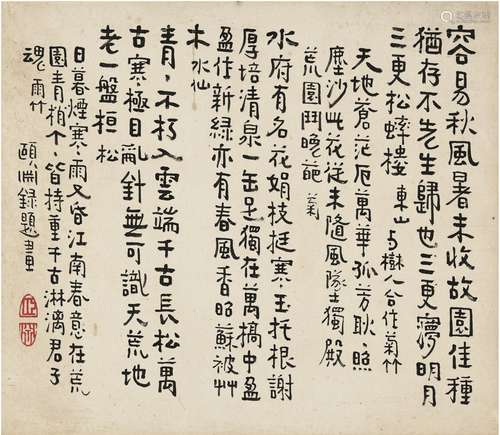 容易秋風暑未收故園佳種
猶存不先生歸也三更夢明月
三更松蟀樓 東山与樹人合作菊竹
天地蒼茫厄萬華孤芳耿照
塵沙此花從未隨風墜獨殿
荒園鬥晚葩 菊
水府有名花娟枝挺寒玉托根謝
厚培清泉一缶足獨在萬槁中盈
盈作新綠亦有春風香昭蘇被艸
木 水仙
青青不朽入雲端千古長松萬
古寒極目亂針無可識天荒地
老一盤桓 松
日暮煙寒雨又昏江南春意在荒
園青梢个个皆持重千古淋漓君子
魂 雨竹
頤淵錄題畫